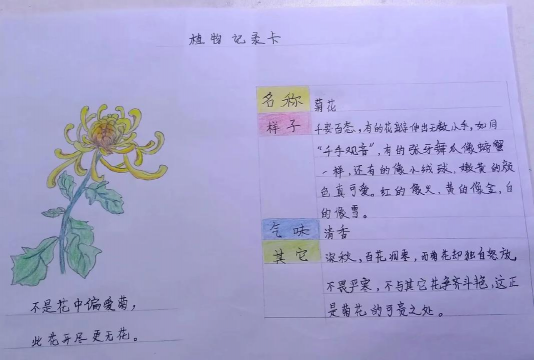 植物记录卡
名称 菊花
样子 千姿百态,有的花瓣伸出无数小手,如同
"千手观音",有的张牙舞爪像螃蟹
一样,还有的像小绒球,嫩黄的颜
色真可爱。红的像火,黄的像金,白
的像雪。
气味 清香
其它 深秋,百花凋零,而菊花却独自怒放,
不畏严寒,不与其它花争奇斗艳,这正
是菊花的可贵之处。
不是花中偏爱菊,
此花开尽更无花。